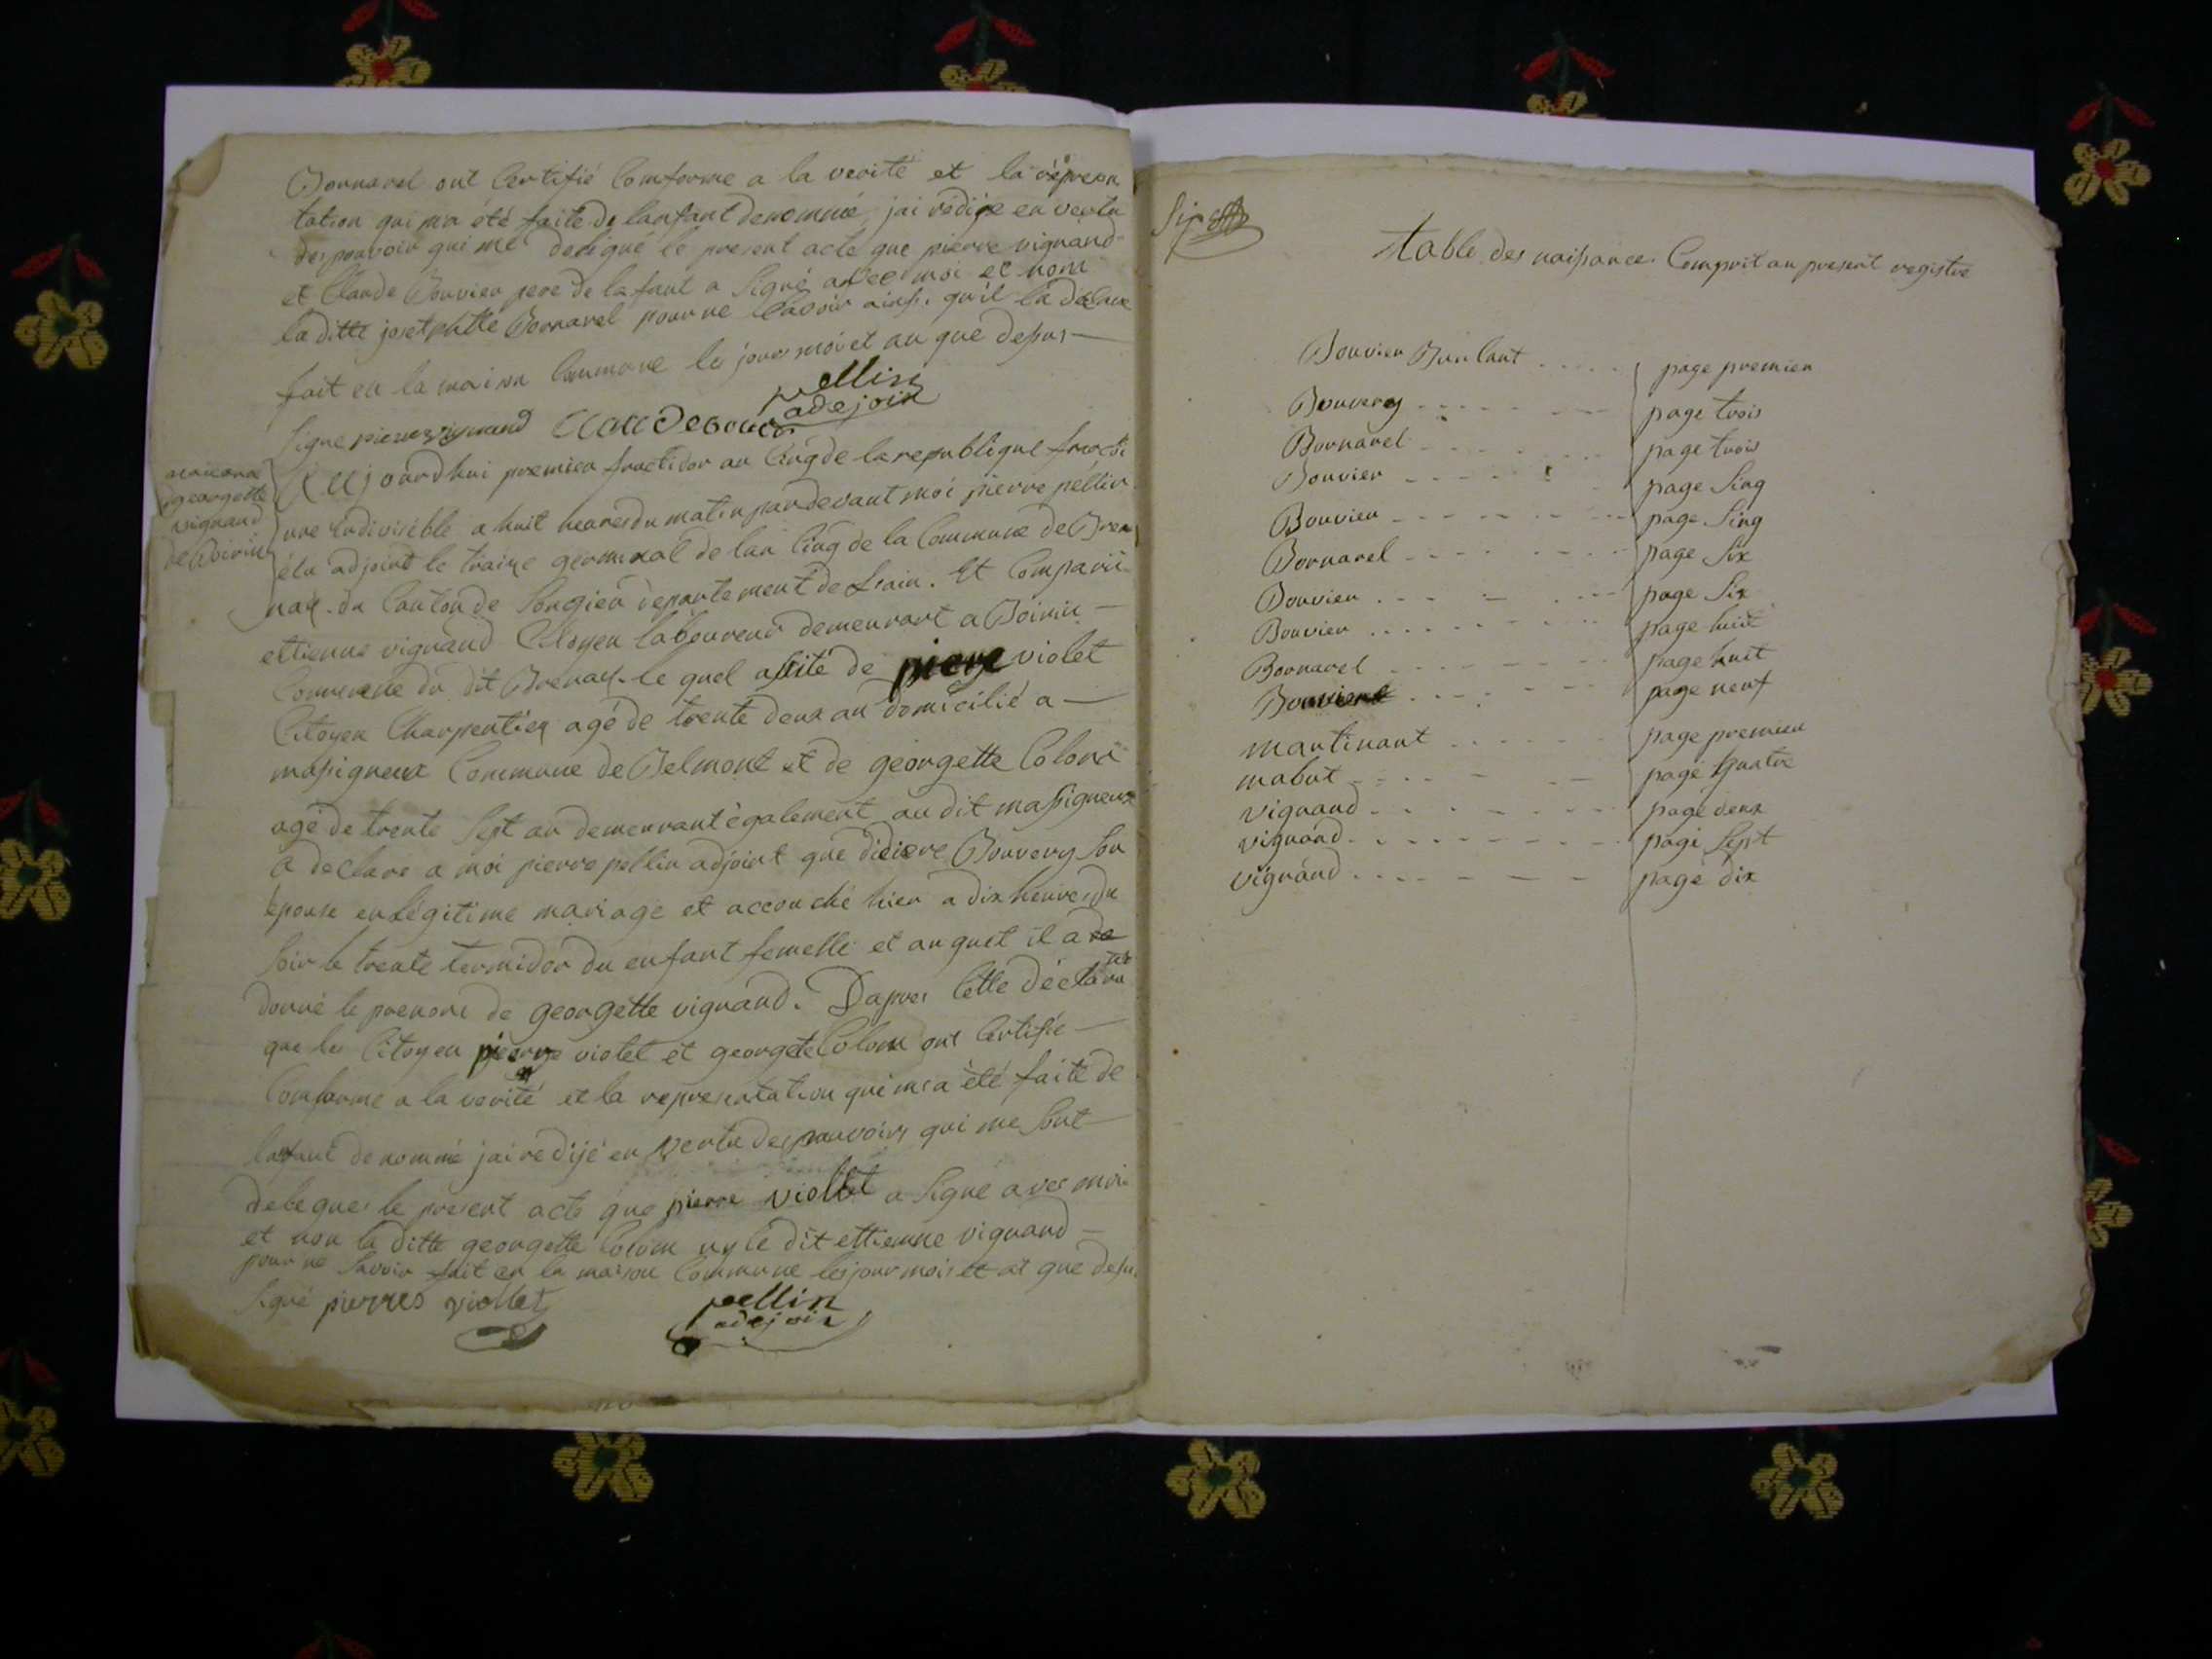 Bornarel ont Certifié Comforme a la verité et la répresen
tation qui ma été faite de lanfant denommé jai rédigé en vertu
des pouvoir qui me delegué le present acte que pierre vignand
et Claude Bouvier pere de lafant a Signé avec moi et nom
la ditte josetphtte Bornarel pour ne Savoir ainsi quil la déclare
fait en la maison Commune les jour moi et an que desus
pellin
adejoin
Signe pierre vignand Claude bouvier
naissance
georgette
vignand
de Boirin
Aujourdhui premien fructidor an Cinq de la republique francai
une Indivisible a huit heures du matin pardevant moi pierre pellin
élu adjoint le traize germinal de lan Cinq de la Commune de Bren
nax du Canton de Songieu departement de Lain. Et Comparu
ettienne vignand Citoyen laboureur demeurant a Boirin
Commune du dit Brenax le quel assité de piere violet
Citoyen Charpentier agé de trente deux an domicilié a
massigneux Commune de Belmont et de georgette Colom
agé de trente Sept an demeurant également au dit massigneux
a declare a moi pierre pellin adjoint que didiere Bouvery Son
épouse en légitime mariage et accouché hier a dix heures du
Soir le trente termidor du enfant femelle et auquel il a
donné le prenom de georgette vignand. Dapres Cette déclara
tion
que les Citoyen pierre violet et georgete Colom ont Certifie
Comforme a la verité et la representation qui ma été faite de
lanfant denommé jai redijé en vertu des pouvoirs qui me Sont
delegues le present acte que pierre viollet a Signe avec moi
et non la ditte georgette Colom ny le dit ettienne vignand
pour ne Savoir fait en la maison Commune les jour mois et an que desu
Signé pierres viollet
pellin
adejoin
Six
table des naissances Comprit au present registre
Bouvier Brulant ..... page premien
Bouvery ..... page trois
Bornarel ..... page trois
Bouvier ..... page Sinq
Bouvier ..... page Sinq
Bornarel ..... page Six
Bouvier ..... page Six
Bouvier ..... page huit
Bornarel ..... page huit
Bouvier ..... page neuf
martinant ..... page premien
mabut ..... page quatre
vignand ..... page deux
vignand ..... page Sept
vignand ..... page dix